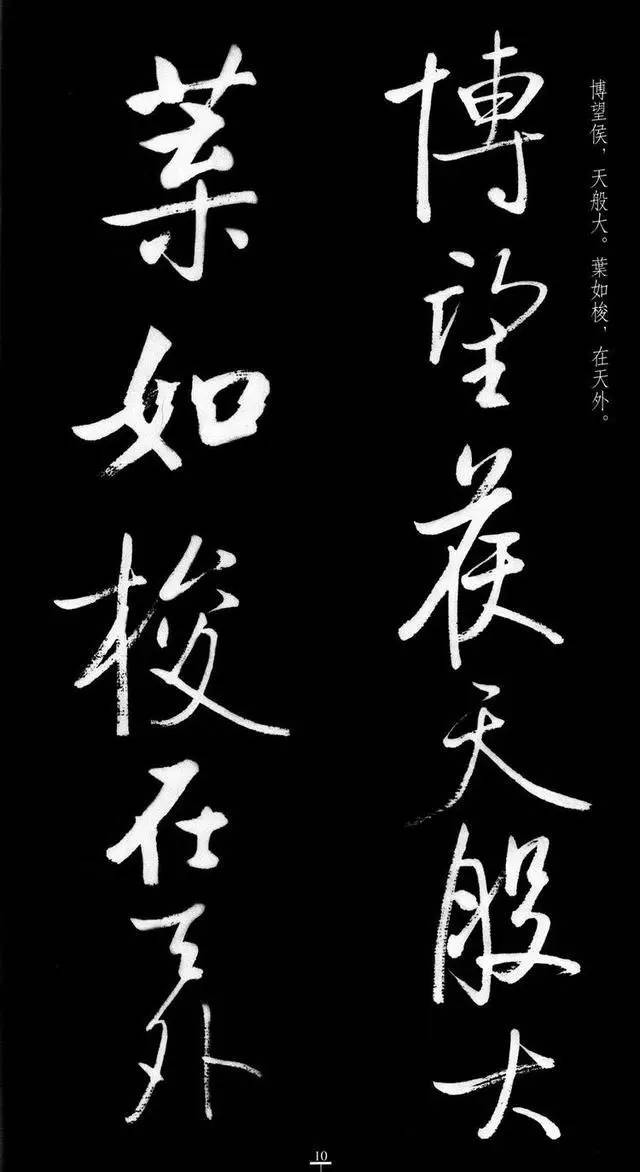 博望侯，天般大。葉如梭，在天外。
博望侯天般大
葉如梭在天外
10